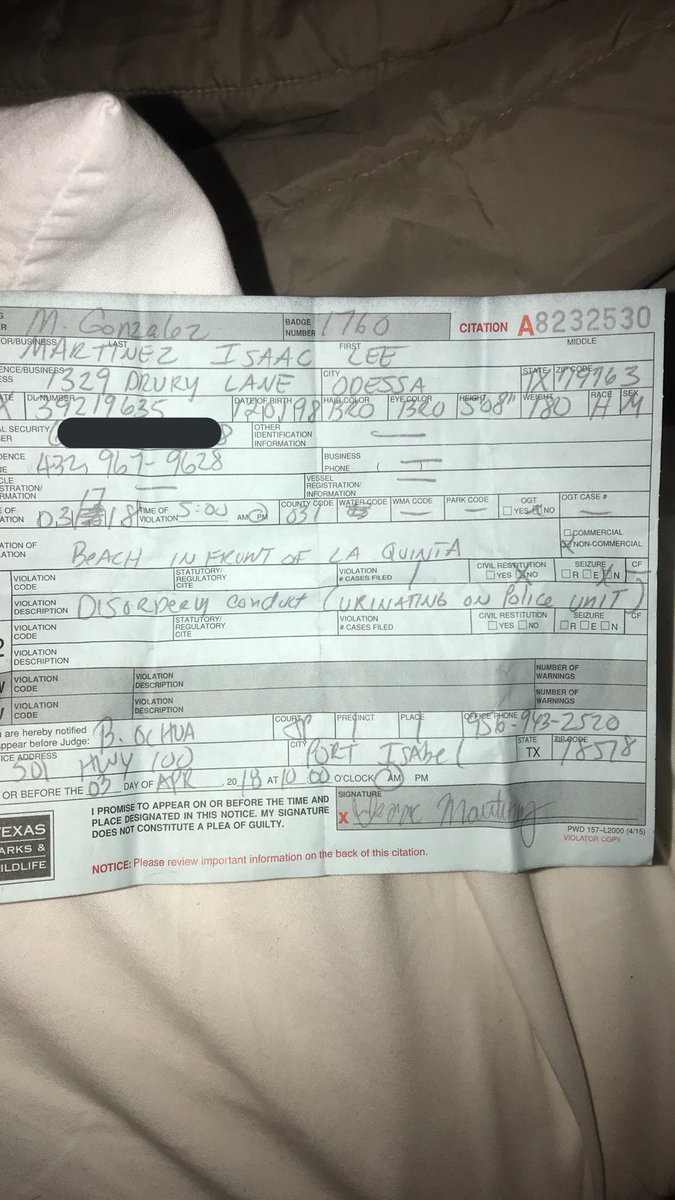 M. Gonzalez BADGE NUMBER 1760 CITATION A8232530
OR/BUSINESS LAST FIRST MIDDLE
MARTINEZ ISAAC LEE
ENCE/BUSINESS CITY STATE ZIP CODE
ESS 1329 DRURY LANE ODESSA TX 79763
ATE DL NUMBER DATE OF BIRTH HAIR COLOR EYE COLOR HEIGHT WEIGHT RACE SEX
X 39219635 BRO BRO 508" 180 H M
AL SECURITY/ OTHER IDENTIFICATION INFORMATION
DENCE 432, 967-9628 BUSINESS PHONE ( )
STRATION/ RMATION VESSEL REGISTRATION/ INFORMATION
E OF ATION TIME OF VIOLATION 5:00 AM PM COUNTY CODE 031 WATER CODE WMA CODE PARK CODE OGT YES NO OGT CASE #
COMMERCIAL
ATION OF ATION BEACH IN FRONT OF LA QUINTA NON-COMMERCIAL
VIOLATION CODE STATUTORY/ REGULATORY CITE VIOLATION # CASES FILED 1 CIVIL RESTITUTION YES NO SEIZURE R E N CF
VIOLATION DESCRIPTION DISORDERLY conduct (URINATING ON POLICE UNIT)
VIOLATION CODE STATUTORY/ REGULATORY CITE VIOLATION # CASES FILED CIVIL RESTITUTION YES NO SEIZURE R E N CF
VIOLATION DESCRIPTION
VIOLATION CODE VIOLATION DESCRIPTION NUMBER OF WARNINGS
VIOLATION CODE VIOLATION DESCRIPTION NUMBER OF WARNINGS
are hereby notified appear before Judge: B. OCHUA COURT JP PRECINCT 1 PLACE 1 OFFICE PHONE 956-943-2520
ICE ADDRESS 501 HWY 100 CITY PORT ISAbel STATE TX ZIP CODE 78578
OR BEFORE THE 03 DAY OF APR , 20 18 AT 10:00 O'CLOCK AM PM
I PROMISE TO APPEAR ON OR BEFORE THE TIME AND
PLACE DESIGNATED IN THIS NOTICE. MY SIGNATURE
DOES NOT CONSTITUTE A PLEA OF GUILTY.
SIGNATURE
X
TEXAS
ARKS &
ILDLIFE
PWD 157–L2000 (4/15)
VIOLATOR COPY
NOTICE: Please review important information on the back of this citation.